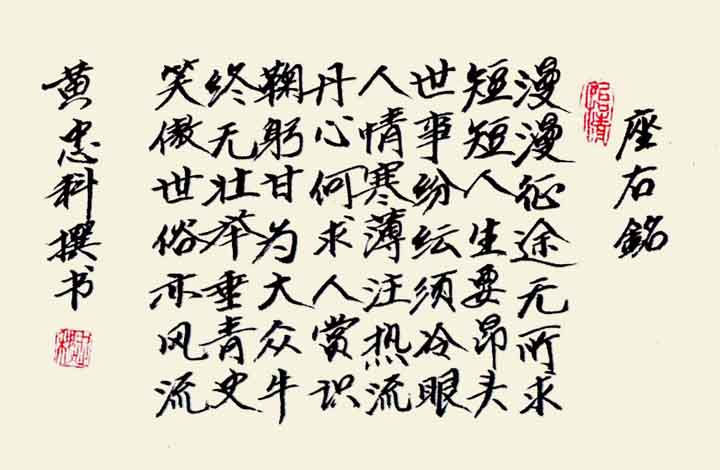 座右銘
漫漫征途无所求
短短人生要昂头
世事纷纭须冷眼
人情寒薄注热流
丹心何求人赏识
鞠躬甘为大众牛
终无壮举垂青史
笑傲世俗亦风流
黄忠科撰书